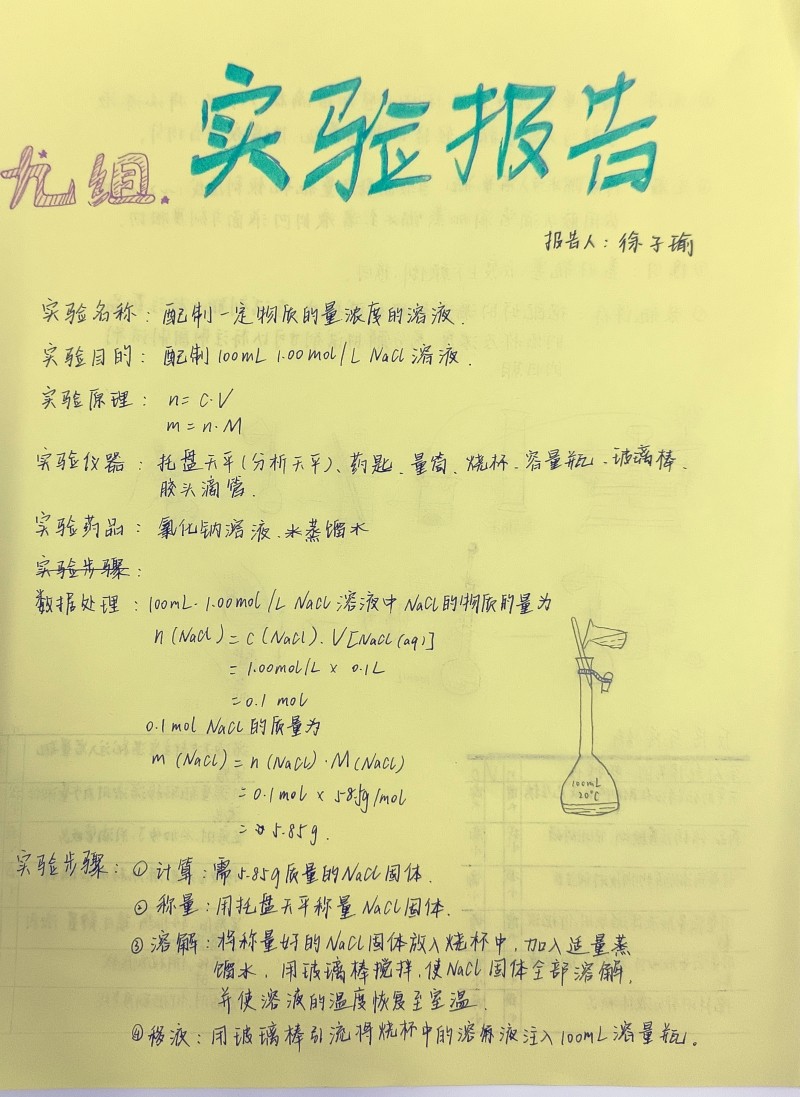 实验报告
九组.
报告人：徐子瑜
实验名称：配制一定物质的量浓度的溶液.
实验目的：配制100mL 1.00mol/L NaCl溶液.
实验原理：n=c·V
m=n·M
实验仪器：托盘天平(分析天平)、药匙、量筒、烧杯、容量瓶、玻璃棒、
胶头滴管.
实验药品：氯化钠溶液、蒸馏水
实验步骤：
数据处理：100mL·1.00mol/L NaCl溶液中NaCl的物质的量为
n(NaCl)=c(NaCl)·V[NaCl(aq)]
=1.00mol/L×0.1L
=0.1mol
0.1mol NaCl的质量为
m(NaCl)=n(NaCl)·M(NaCl)
=0.1mol×58.5g/mol
=5.85g.
100mL
20°C
实验步骤：①计算：需5.85g质量的NaCl固体.
②称量：用托盘天平称量NaCl固体.
③溶解：将称量好的NaCl固体放入烧杯中，加入适量蒸
馏水，用玻璃棒搅拌，使NaCl固体全部溶解，
并使溶液的温度恢复至室温.
④移液：用玻璃棒引流将烧杯中的溶解液注入100mL溶量瓶。